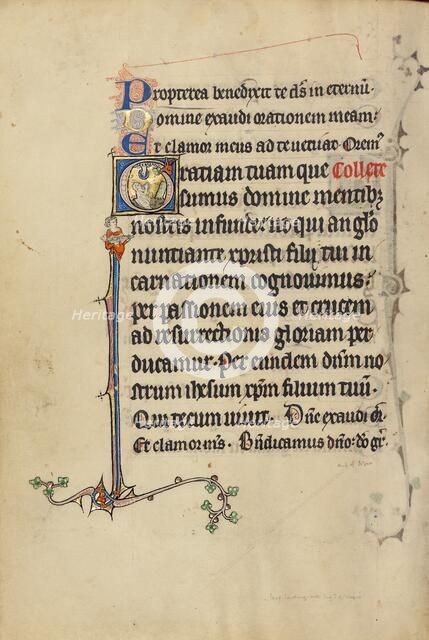 Propterea benedixit te ds in eternū.
Domine exaudi orationem meam:
Et clamor meus ad te veniat. Orem'
Gratiam tuam que Collecte
sumus domine mentibz
nostris infunde: ut qui anglo
nuntiante xpristi filij tui in
carnationem cognovimus:
per passionem eius et crucem
ad resurrectionis gloriam per
ducamur. Per eundem dnm no
strum ihesum xpm filium tuū.
Qui tecum vivit. Dne exaudi or
Et clamor ms. Bndicamus dno: do gr
Heritage
Heritage
Heritage
Heritage